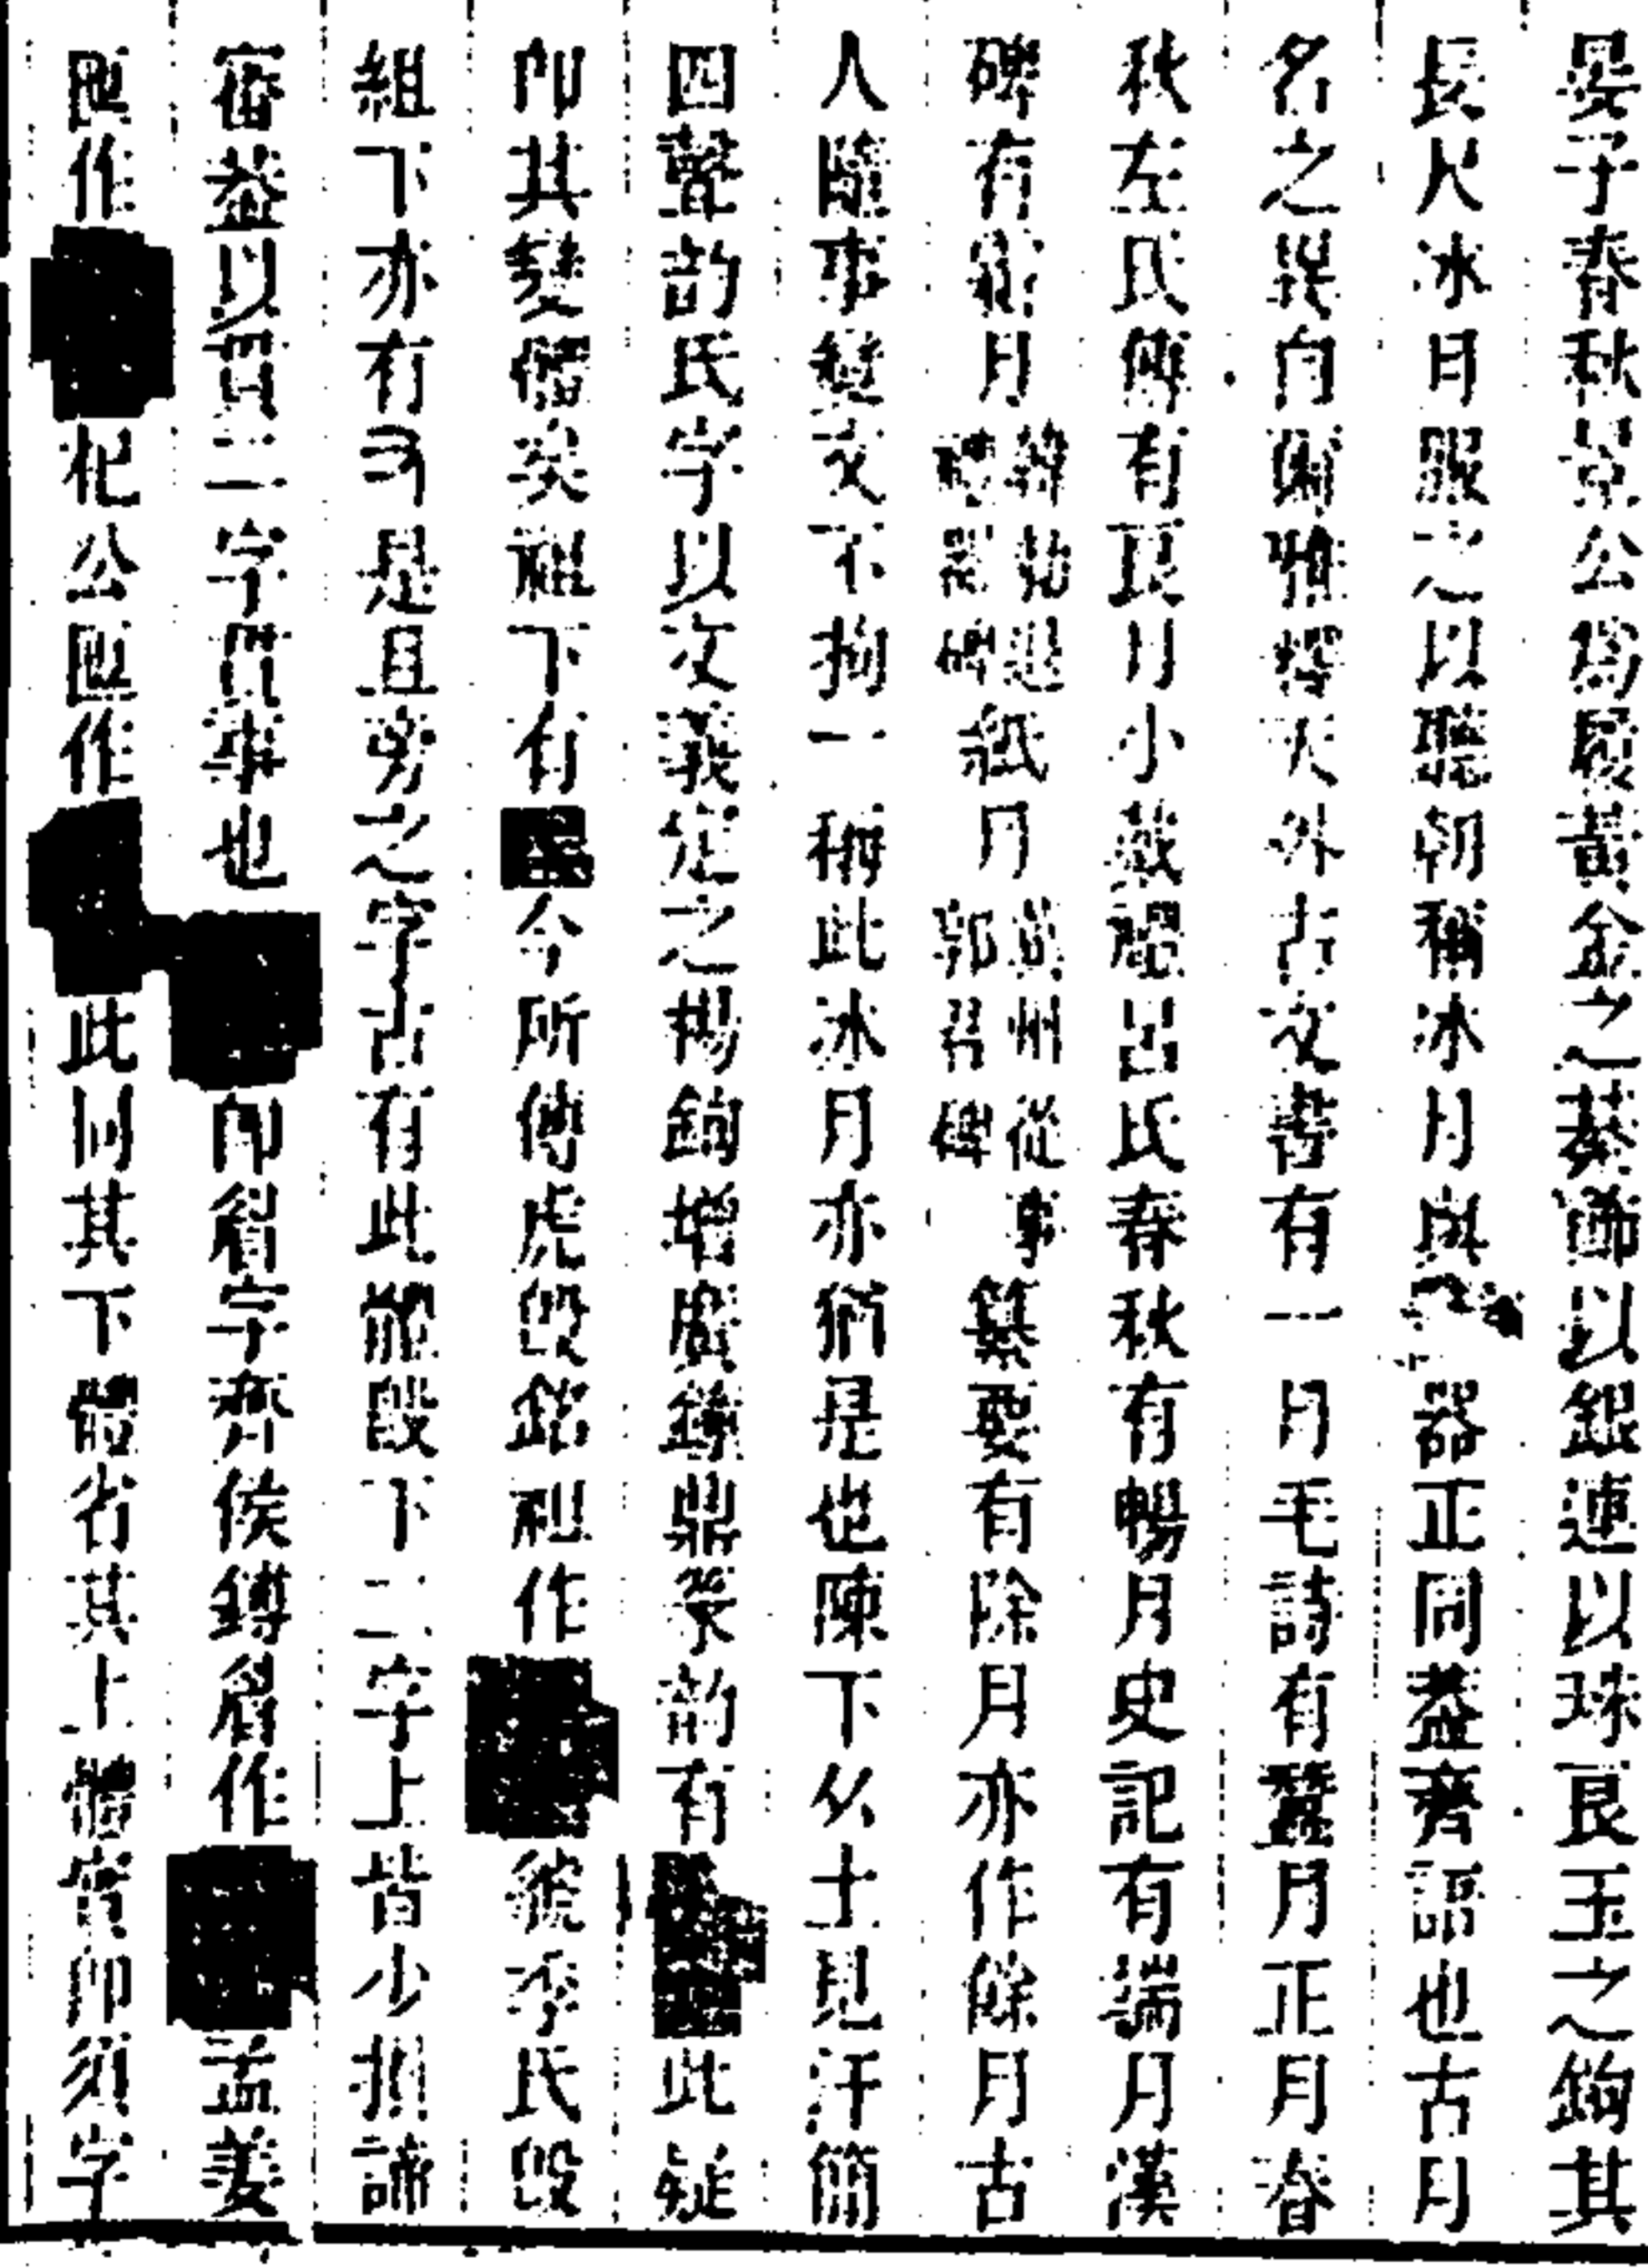 晏子春秋景公爲履黃金之綦飾以銀連以珠良玉之鉤其
長尺冰月服之以聽朝稱冰月與器正同蓋齊語也古月
名之異自爾雅釋天外古文書有一月毛詩有蠶月正月春
秋左氏傳有良月小戴記呂氏春秋有暢月史記有端月漢
碑有月紙月郭君碑從事纂要有除月亦作餘月古
人隨事變文不拘一稱此冰月亦猶是也陳下从土見汗簡
四聲韵許氏字以文義定之楊鉤增廣鐘鼎篆韵有此疑
卽其變體矣祖下有今所傳虎敦銘祖作虢季氏敦
組下亦有是且旁之字古有此體敦下二字上皆少損諦
審蓋以買二字質事也卽眉字齊侯鎛眉作孟姜
匜作杞公匜作此同其下體省其上體實卽須字